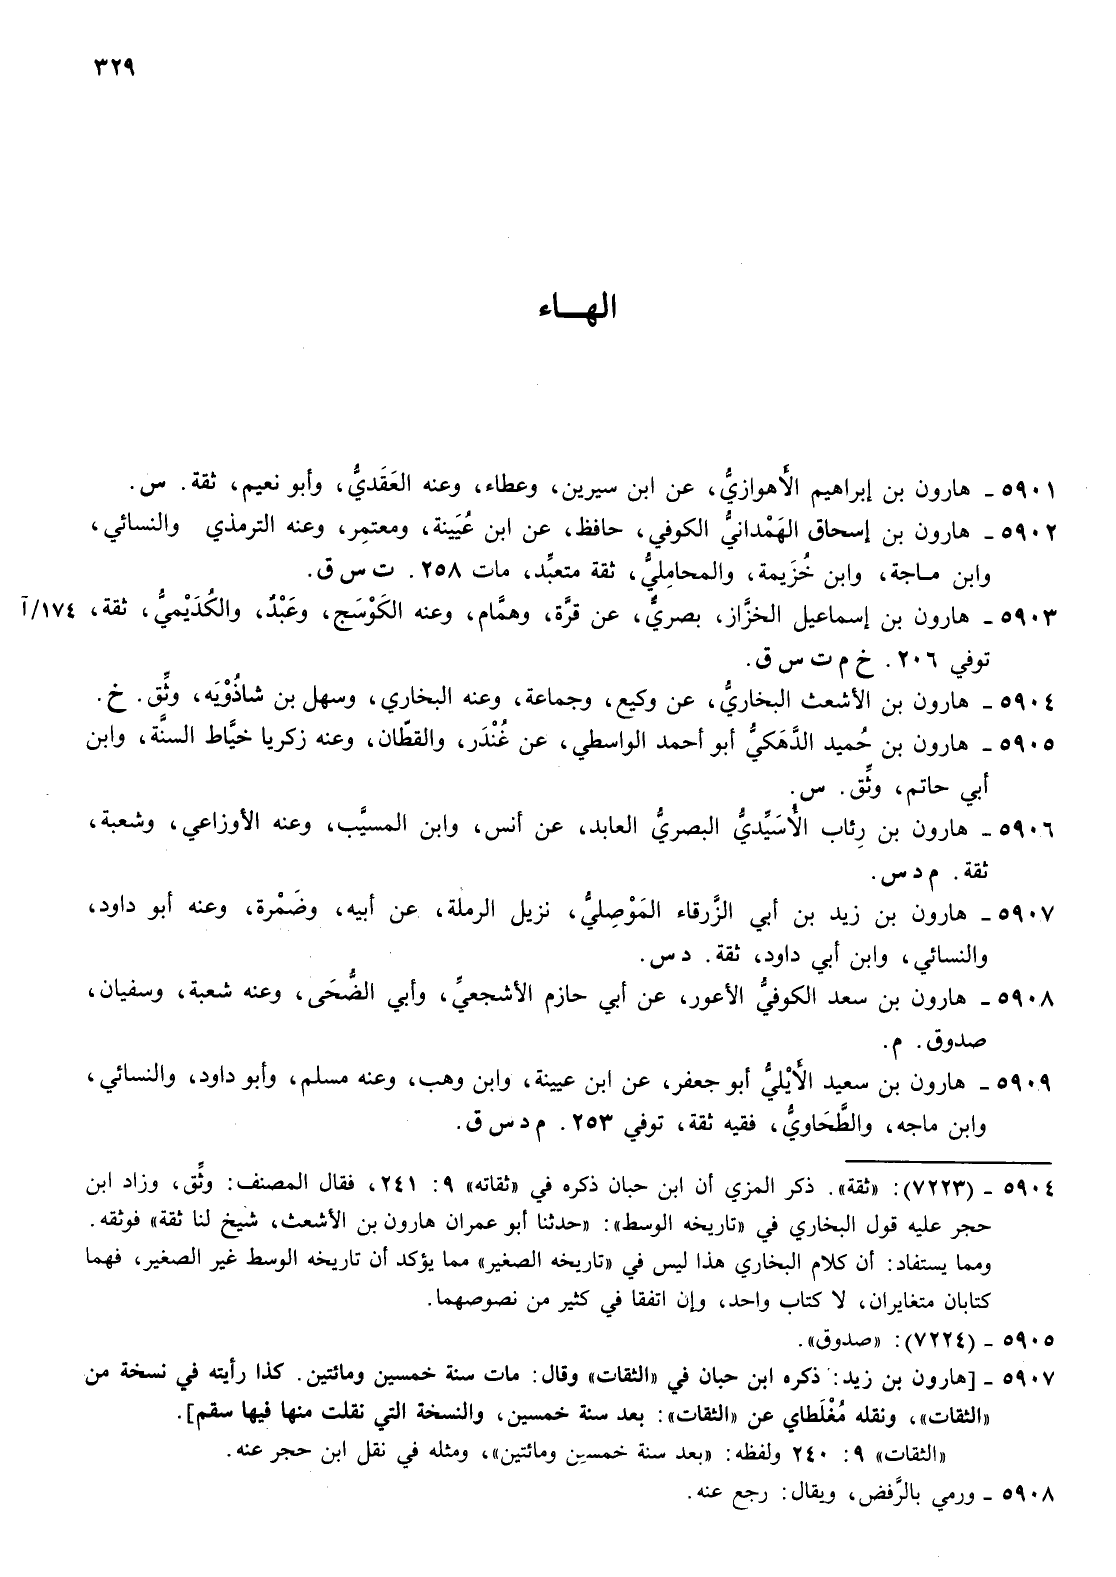 ٣٢٩
الهـاء
٥٩٠١ ـ هارون بن إبراهيم الأَهوازيُّ، عن ابن سيرين، وعطاء، وعنه العَقَديُّ، وأبو نعيم، ثقة. س.
٥٩٠٢ ـ هارون بن إسحاق الهَمْدانيُّ الكوفي، حافظ، عن ابن عُيَينة، ومعتمِر، وعنه الترمذي والنسائي،
وابن ماجة، وابن خُزَيمة، والمحامِليُّ، ثقة متعبِّد، مات ٢٥٨. ت س ق.
٥٩٠٣ ـ هارون بن إسماعيل الخزَّاز، بصريٌّ، عن قرَّة، وهمَّام، وعنه الكَوْسَج، وعَبْدٌ، والكُدَيْميُّ، ثقة، ١٧٤/آ
توفي ٢٠٦. خ م ت س ق.
٥٩٠٤ ـ هارون بن الأشعث البخاريُّ، عن وكيع، وجماعة، وعنه البخاري، وسهل بن شاذُوْيَه، وثِّق. خ.
٥٩٠٥ ـ هارون بن حُميد الدَّهَكيُّ أبو أحمد الواسطي، عن غُنْدَر، والقطّان، وعنه زكريا خيَّاط السنَّة، وابن
أبي حاتم، وثِّق. س.
٥٩٠٦ ـ هارون بن رِئاب الأُسَيِّديُّ البصريُّ العابد، عن أنس، وابن المسيَّب، وعنه الأوزاعي، وشعبة،
ثقة. م د س.
٥٩٠٧ ـ هارون بن زيد بن أبي الزَّرقاء المَوْصِليُّ، نزيل الرملة، عن أبيه، وضَمْرة، وعنه أبو داود،
والنسائي، وابن أبي داود، ثقة. د س.
٥٩٠٨ ـ هارون بن سعد الكوفيُّ الأعور، عن أبي حازم الأشجعيِّ، وأبي الضُّحَى، وعنه شعبة، وسفيان،
صدوق. م.
٥٩٠٩ ـ هارون بن سعيد الأَيْليُّ أبو جعفر، عن ابن عيينة، وابن وهب، وعنه مسلم، وأبو داود، والنسائي،
وابن ماجه، والطَّحَاويُّ، فقيه ثقة، توفي ٢٥٣. م د س ق.
٥٩٠٤ ـ (٧٢٢٣): «ثقة». ذكر المزي أن ابن حبان ذكره في «ثقاته» ٩: ٢٤١، فقال المصنف: وثِّق، وزاد ابن
حجر عليه قول البخاري في «تاريخه الوسط»: «حدثنا أبو عمران هارون بن الأشعث، شيخ لنا ثقة» فوثقه.
ومما يستفاد: أن كلام البخاري هذا ليس في «تاريخه الصغير» مما يؤكد أن تاريخه الوسط غير الصغير، فهما
كتابان متغايران، لا كتاب واحد، وإن اتفقا في كثير من نصوصهما.
٥٩٠٥ ـ (٧٢٢٤): «صدوق».
٥٩٠٧ ـ [هارون بن زيد: ذكره ابن حبان في «الثقات» وقال: مات سنة خمسين ومائتين. كذا رأيته في نسخة من
«الثقات»، ونقله مُغْلَطاي عن «الثقات»: بعد سنة خمسين، والنسخة التي نقلت منها فيها سقم].
«الثقات» ٩: ٢٤٠ ولفظه: «بعد سنة خمسين ومائتين»، ومثله في نقل ابن حجر عنه.
٥٩٠٨ ـ ورمي بالرَّفض، ويقال: رجع عنه.